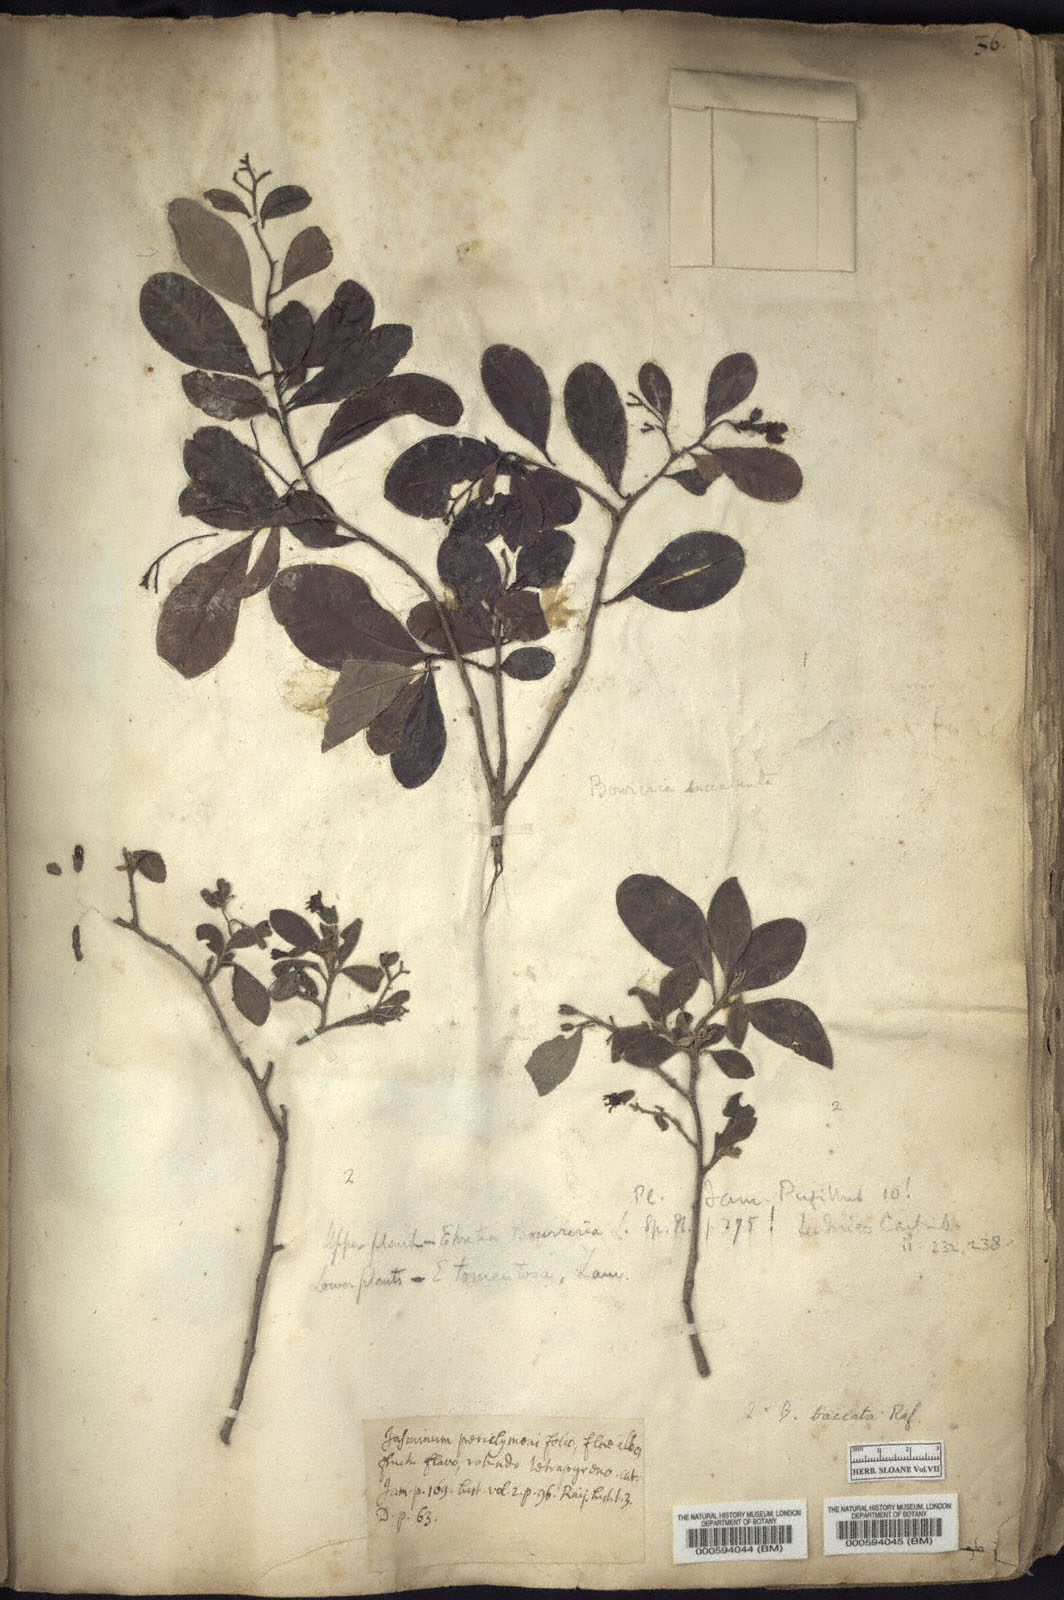 36.
1
Bourreria succulenta
2
2
Pl. Jam. Pugillus 10!
Upper plant - Ehretia Bourreria L. Sp. Pl. p 275!
11. 232, 238
Lower plants - E tomentosa, Lam.
2. B. baccata Raf.
Jasminum periclymeni folio, flore albo,
fructu flavo, rotundo tetrapyreno. Cat.
Jam. p. 169. hist. vol. 2. p. 96. Raij. hist. t. 3.
D. p. 63.
1 2 3
HERB. SLOANE Vol. VII
THE NATURAL HISTORY MUSEUM, LONDON
DEPARTMENT OF BOTANY
000594044 (BM)
THE NATURAL HISTORY MUSEUM, LONDON
DEPARTMENT OF BOTANY
000594045 (BM)